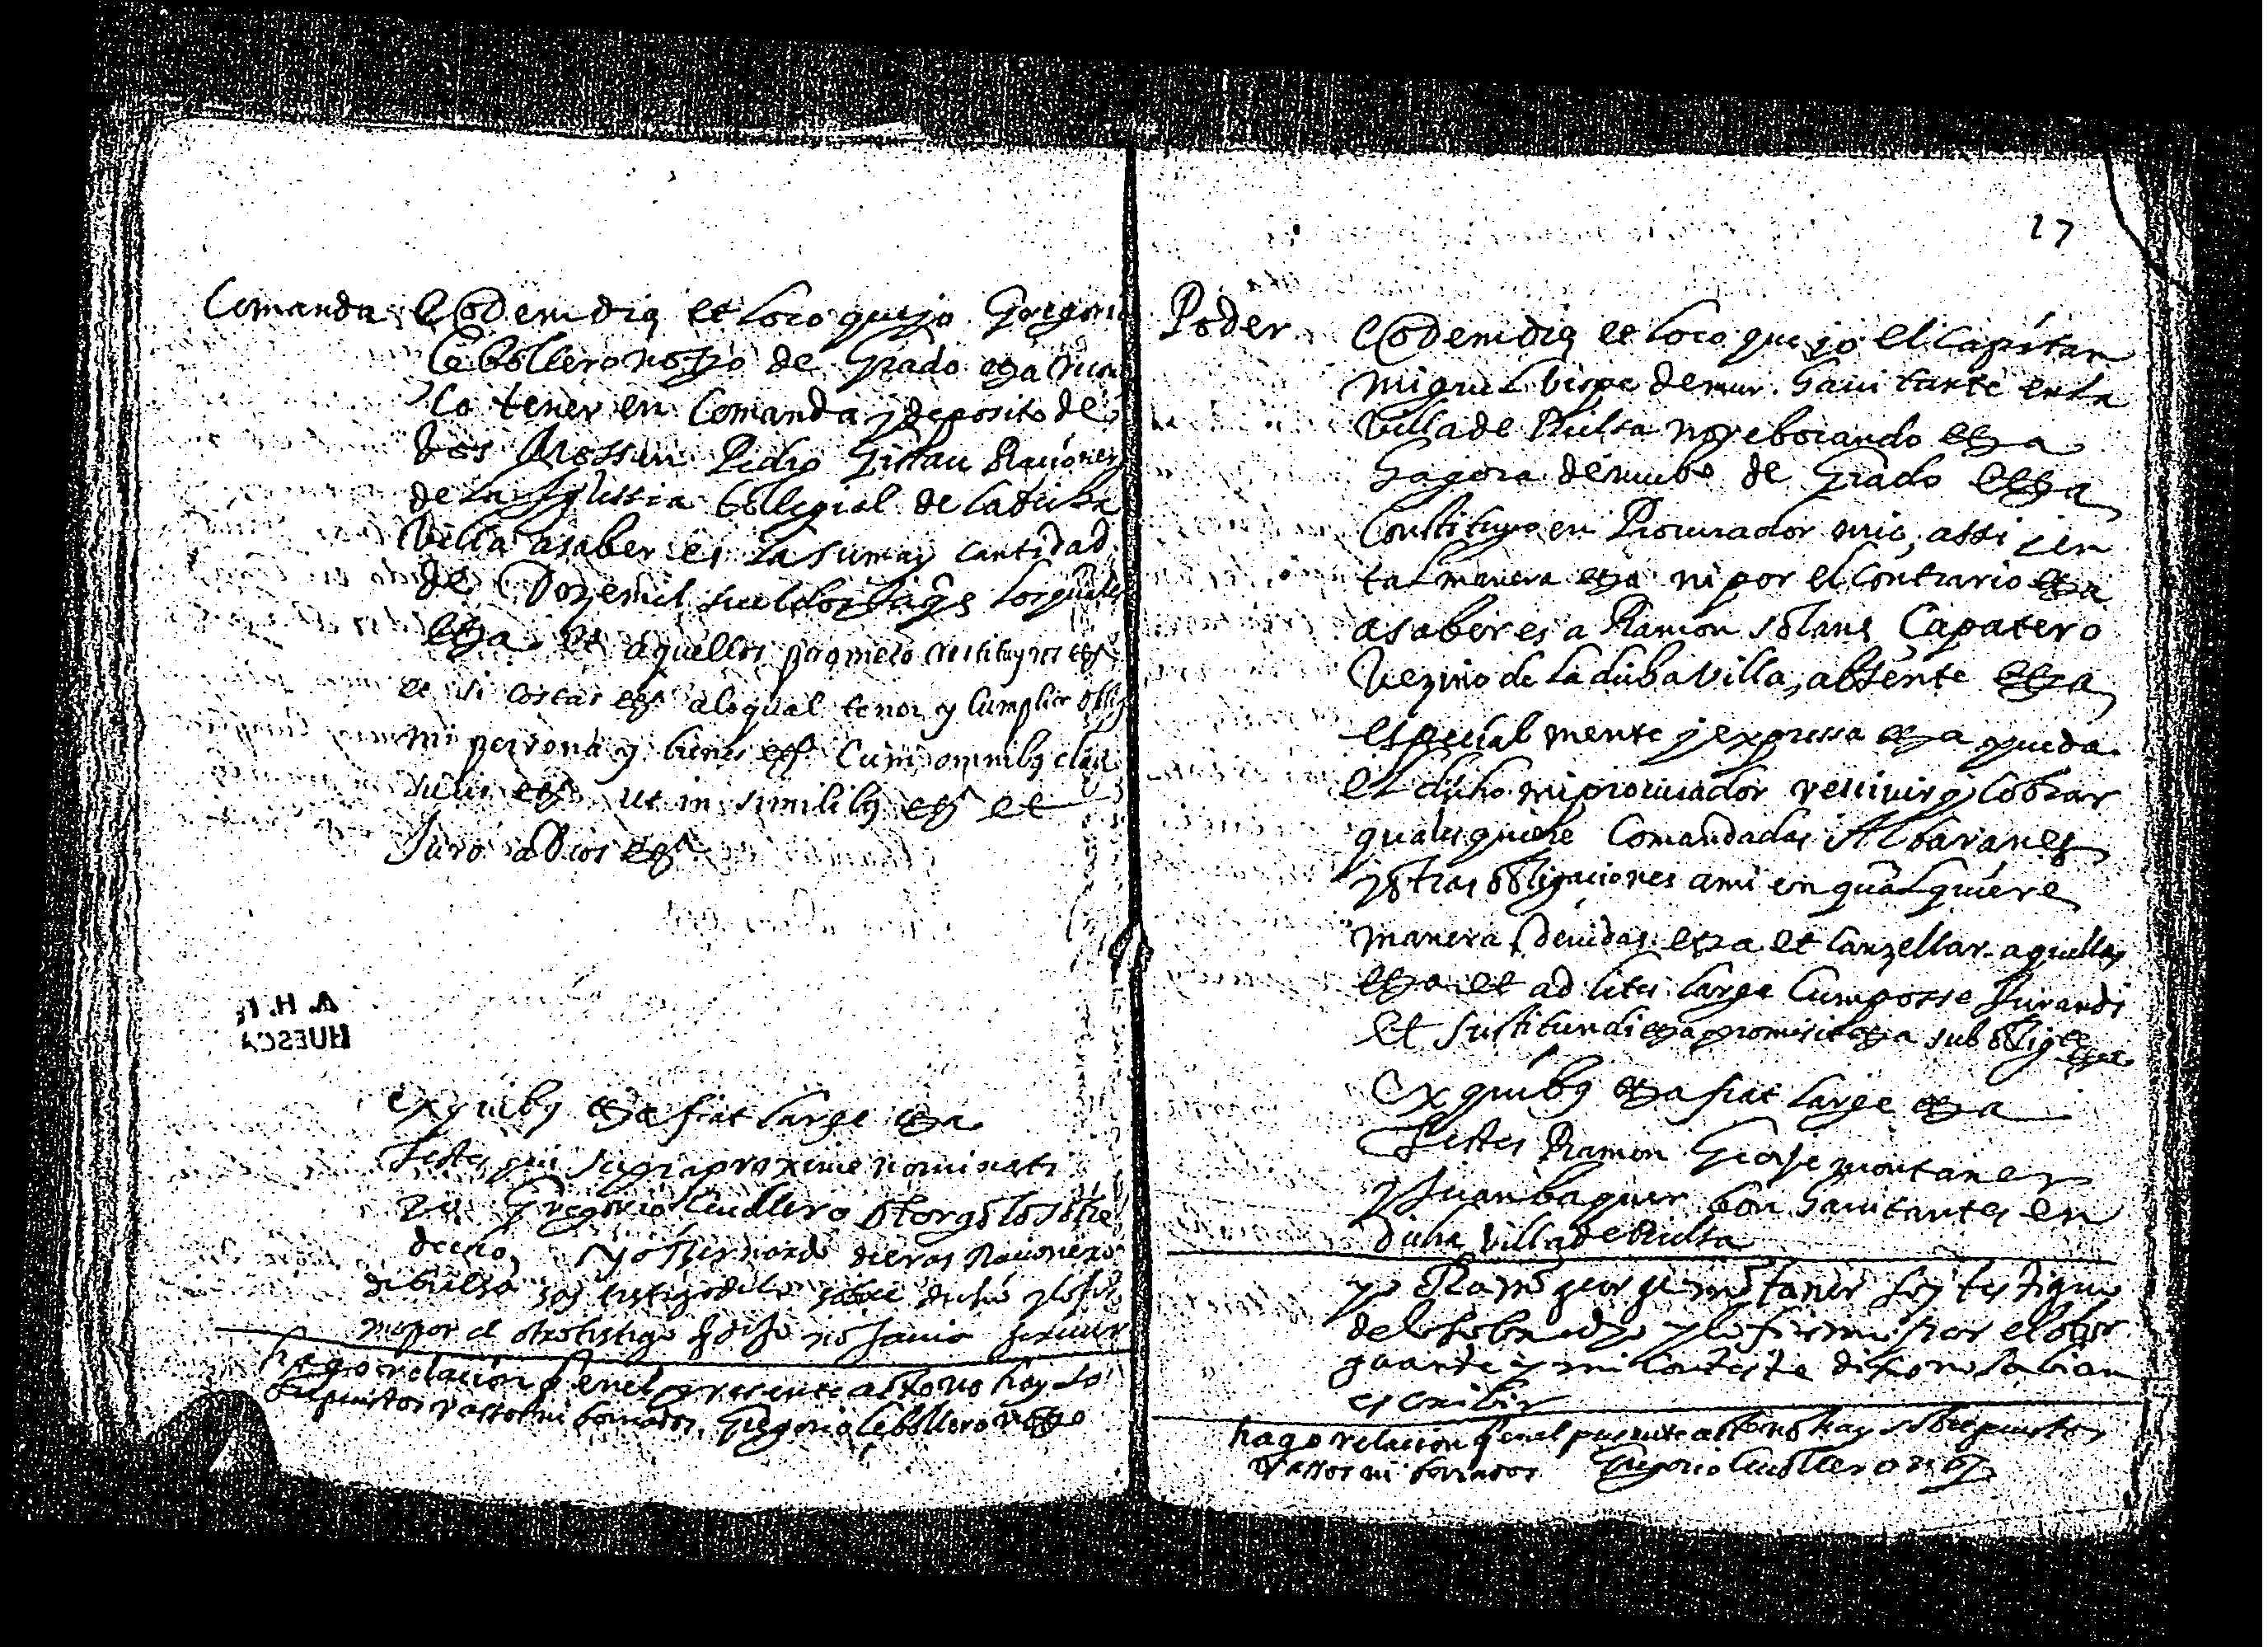 Comanda
Eodem die et loco que yo Gregorio
Cebollero notº de Grado etza
Co tener en Comanda y deposito de
Vos Mossen Pedro Girau Racionero
de la Iglesia Collegial de la dicha
Villa asaber es la suma y cantidad
de Doze mil sueldos Jaqs los quales
etza et aquellos prometo restituyros etzª
et si costas etzª a lo qual tener y cumplir oblig
mi persona y bienes etzª Cum omnibq clau
sulis etzª ut in similibq etzª et
Juro a Dios etzª
A. H. P.
HUESCA
ex quibq etza fiat large etza
Testes qui supra proxime nominati
yo Gregorio Cebollero otorgo lo sobre
decho yo Bernardo Racionero
soy testigo de lo sobre dicho y lo fir
mo por el otro testigo q dijo no savia
hago relacion q en el presente acto no hay so
brepuestos rassos ni borrados. Gregorio Cebollero notº
17
Poder
Eodem die et loco que yo el Capitan
Miguel de mur havitante en la
Villa de no rebocando etza
hagora de nuebo de Grado etza
Constituyo en Procurador mio, assi y en
tal manera etza ni por el contrario etza
asaber es a Ramon Solans Capatero
Vezino de la dicha Villa, absente etza
especialmente y expressa etza pueda
el dicho mi procurador recivir y cobrar
qualesquiere Comandadas Albaranes
y otras obligaciones a mi en qualquiere
manera devidas etza et canzellar aquellas
etza et ad lites large cum posse Jurandi
et sustituendi etza promisit etza sub oblige etza
Ex quibq etza fiat large etza
Testes Ramon George montaner
y Juan baquer havitantes en
dicha villa de
yo Ramo george motaner soy testiguo
de lo sobredho y lo firmo por el otor
guante y mi conteste dixo no sabian
escribir
hago relacion q en el presente acto no hay sobrepuestos
rassos ni borrados Gregorio Cebollero notº